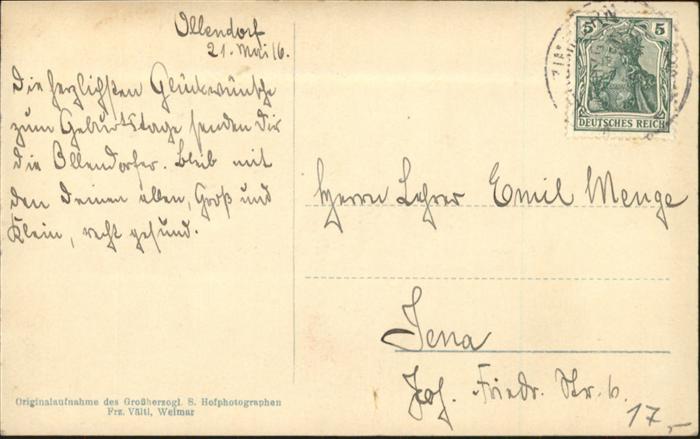 Ollendorf
21. Mai 16.
Die herzlichsten Glückwünsche
zum Geburtstage senden Dir
die Ollendorfer. Bleib mit
den Deinen allen, Groß und
Klein, recht gesund.
5 5
DEUTSCHES REICH
Herrn Lehrer Emil Menge
Jena
Joh. Friedr. Str. 6.
17,-
Originalaufnahme des Großherzogl. S. Hofphotographen
Frz. Vältl, Weimar